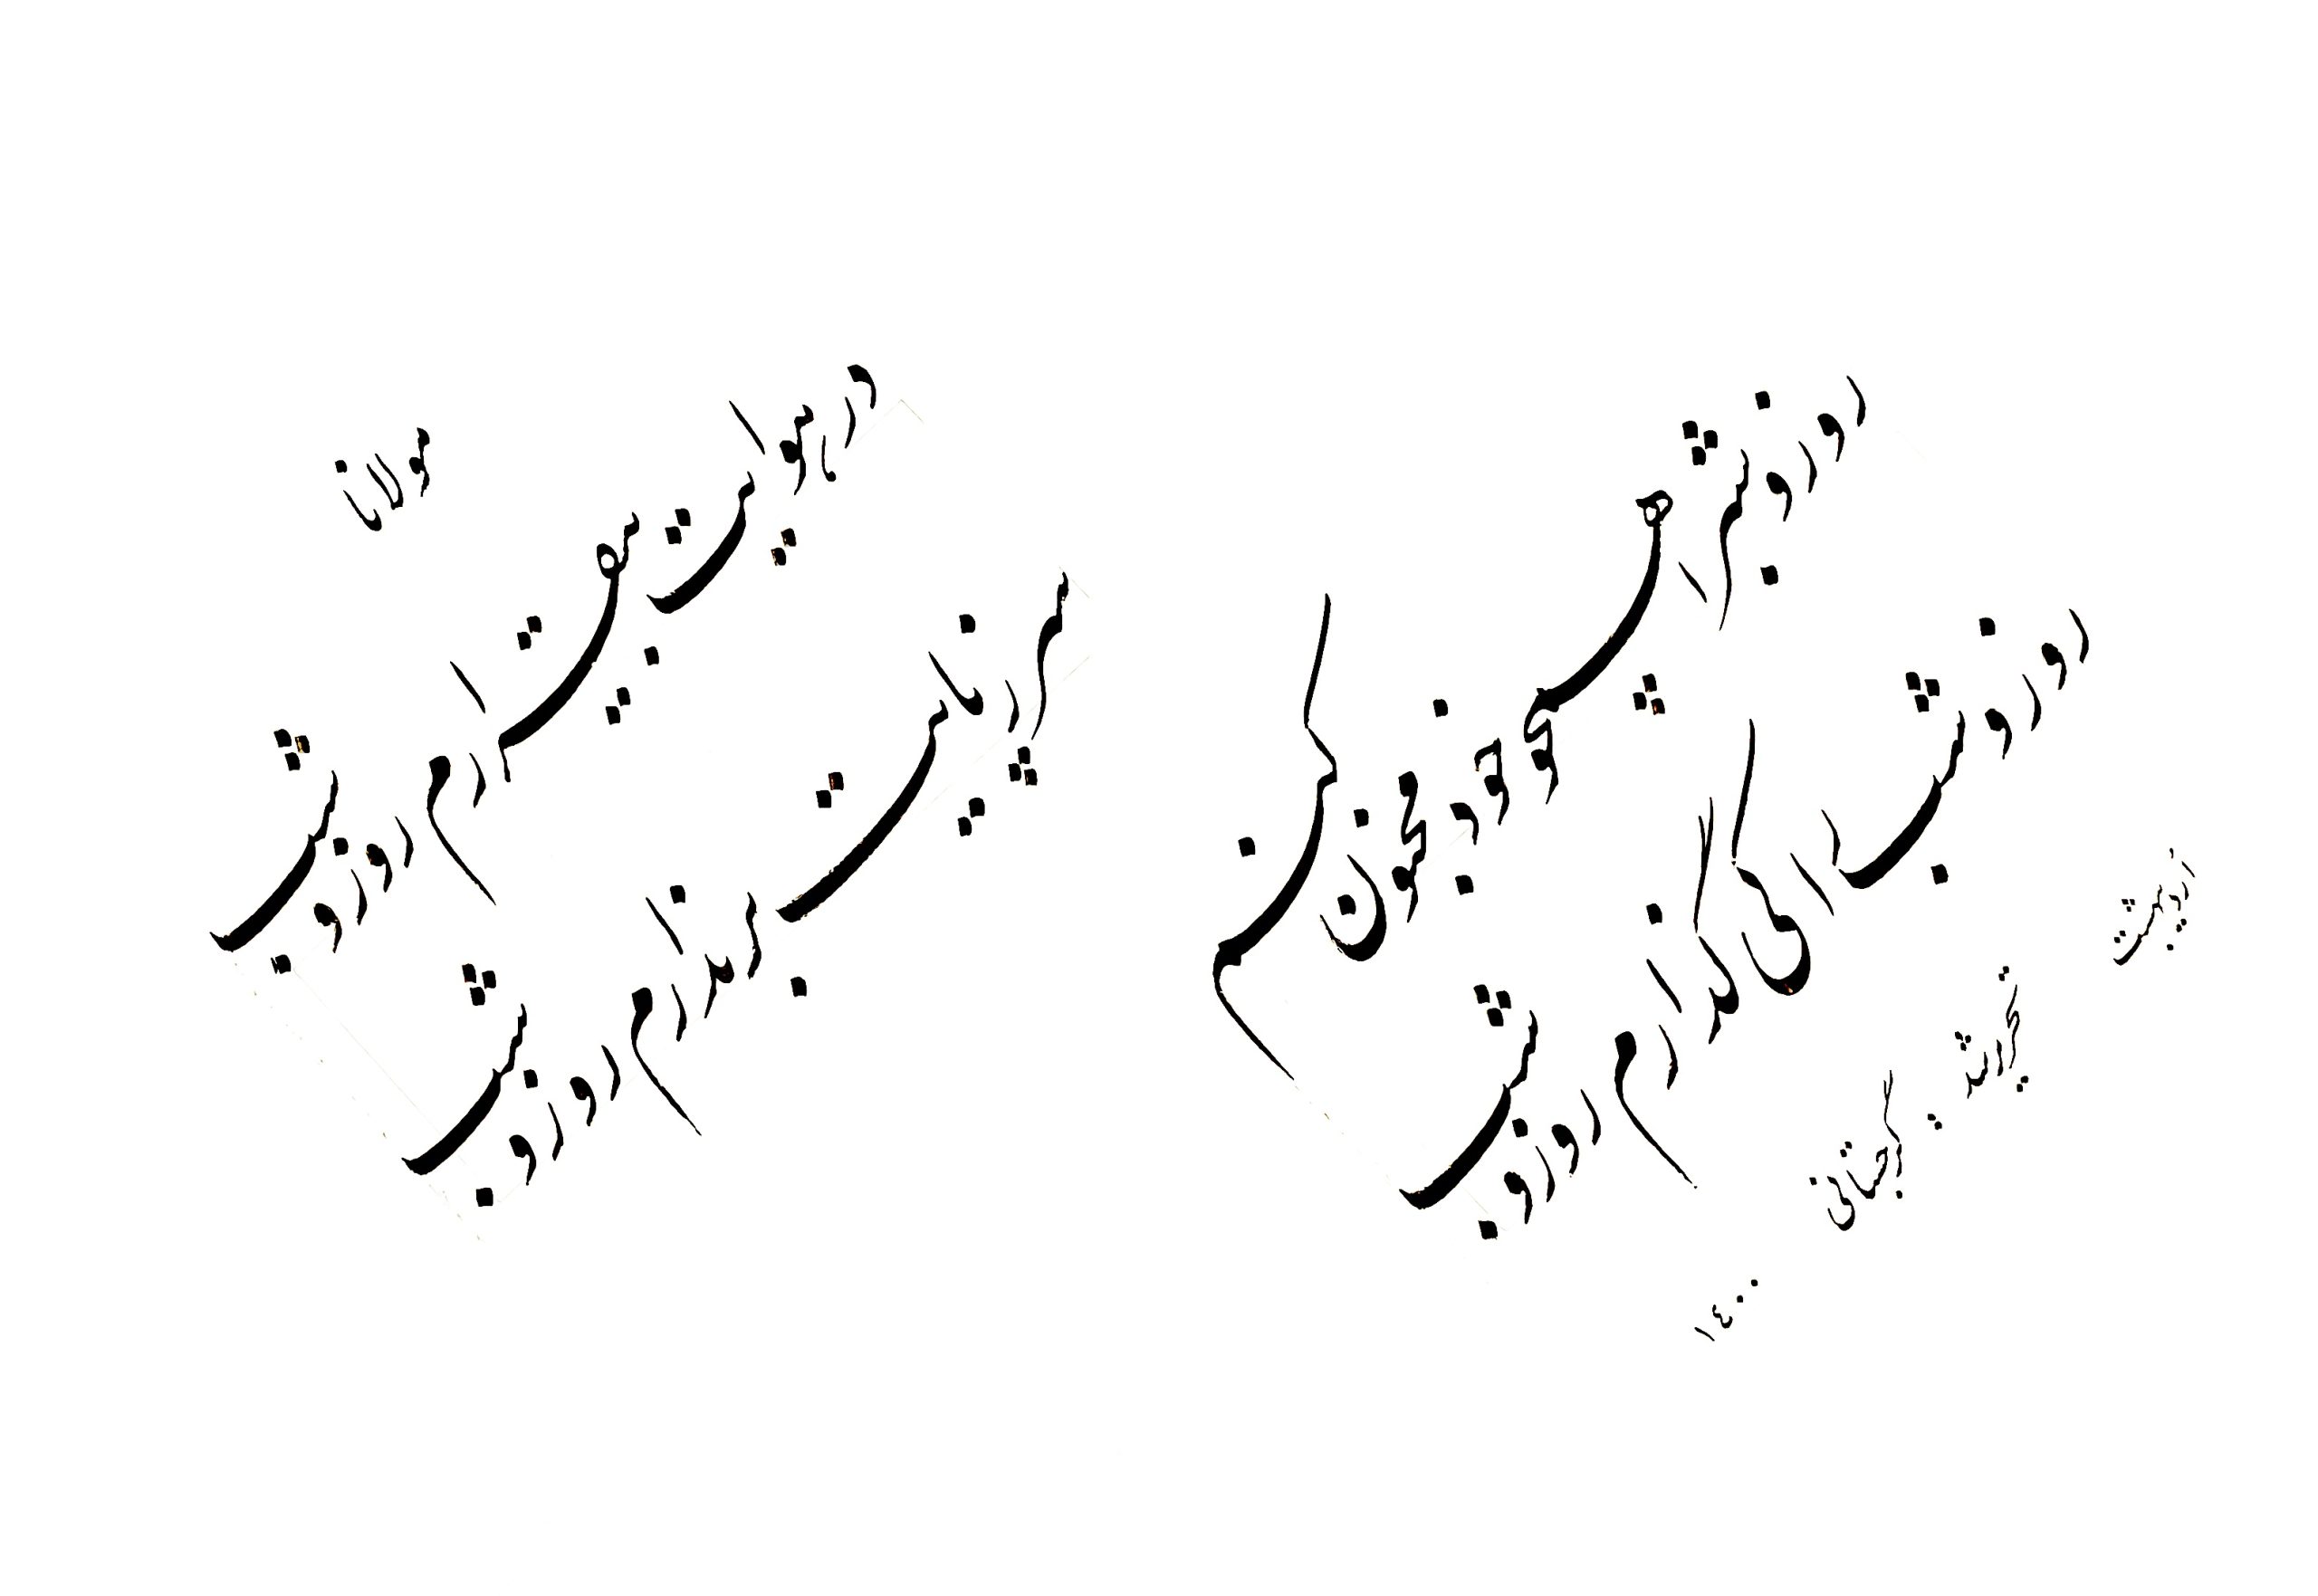 در هوایت بیقرارم روز و شب
سر ز پایت برندارم روز و شب
روز و شب را همچو خود مجنون کنم
روز و شب را کی گذارم روز و شب
مولانا
اردیبهشت
۱۴۰۰